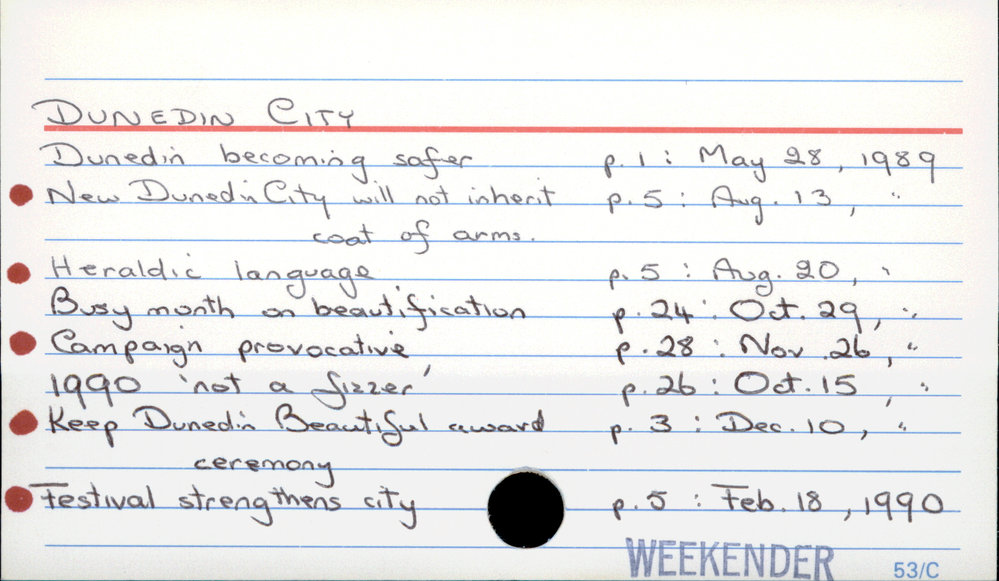 DUNEDIN CITY
Dunedin becoming safer p. 1 : May 28, 1989
New Dunedin City will not inherit p. 5 : Aug. 13, "
coat of arms.
Heraldic language p. 5 : Aug. 20, "
Busy month on beautification p. 24 : Oct. 29, "
Campaign provocative p. 28 : Nov. 26, "
1990 'not a fizzer' p. 26 : Oct. 15, "
Keep Dunedin Beautiful award p. 3 : Dec. 10, "
ceremony
Festival strengthens city p. 5 : Feb. 18, 1990
WEEKENDER 53/C